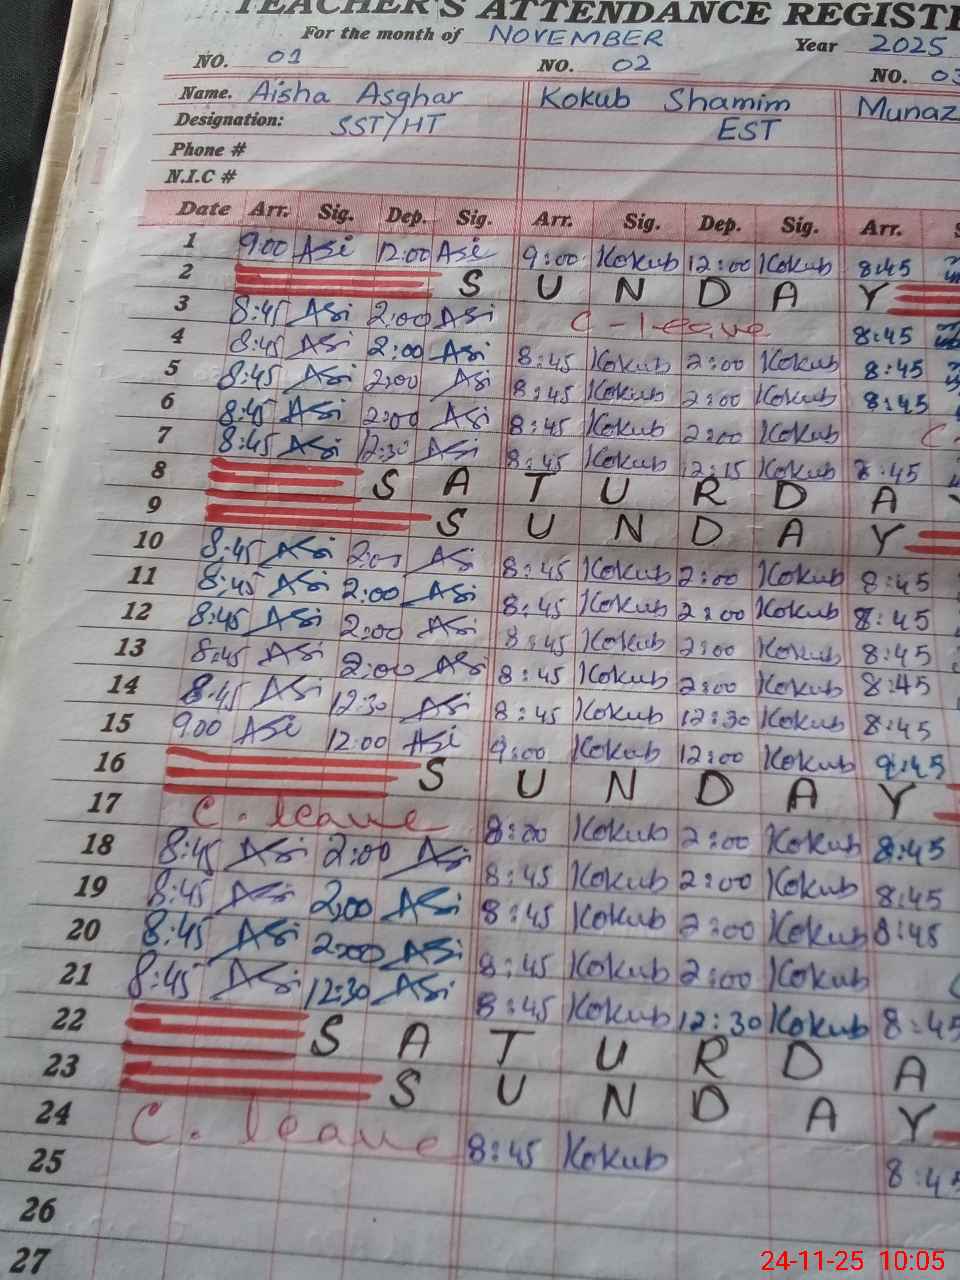 TEACHER'S ATTENDANCE REGISTE
For the month of NOVEMBER Year 2025
NO. 01 NO. 02 NO. 03
Name. Aisha Asghar Kokub Shamim Munaz
Designation: SST/HT EST
Phone #
N.I.C #
Date Arr. Sig. Dep. Sig. Arr. Sig. Dep. Sig. Arr.
1 9:00 Asi 12:00 Asi 9:00 Kokub 12:00 Kokub 8:45
2 S U N D A Y
3 8:45 Asi 2:00 Asi C-leave 8:45
4 8:45 Asi 2:00 Asi 8:45 Kokub 2:00 Kokub 8:45
5 8:45 Asi 2:00 Asi 8:45 Kokub 2:00 Kokub 8:45
6 8:45 Asi 2:00 Asi 8:45 Kokub 2:00 Kokub C.
7 8:45 Asi 12:30 Asi 8:45 Kokub 12:15 Kokub 8:45
8 S A T U R D A Y
9 S U N D A Y
10 8:45 Asi 2:00 Asi 8:45 Kokub 2:00 Kokub 8:45
11 8:45 Asi 2:00 Asi 8:45 Kokub 2:00 Kokub 8:45
12 8:45 Asi 2:00 Asi 8:45 Kokub 2:00 Kokub 8:45
13 8:45 Asi 2:00 Asi 8:45 Kokub 2:00 Kokub 8:45
14 8:45 Asi 12:30 Asi 8:45 Kokub 12:30 Kokub 8:45
15 9:00 Asi 12:00 Asi 9:00 Kokub 12:00 Kokub 9:45
16 S U N D A Y
17 C. leave 8:00 Kokub 2:00 Kokub 8:45
18 8:45 Asi 2:00 Asi 8:45 Kokub 2:00 Kokub 8:45
19 8:45 Asi 2:00 Asi 8:45 Kokub 2:00 Kokub 8:45
20 8:45 Asi 2:00 Asi 8:45 Kokub 2:00 Kokub
21 8:45 Asi 12:30 Asi 8:45 Kokub 12:30 Kokub 8:45
22 S A T U R D A
23 S U N D A Y
24 C. leave 8:45 Kokub 8:45
25
26
27
24-11-25 10:05